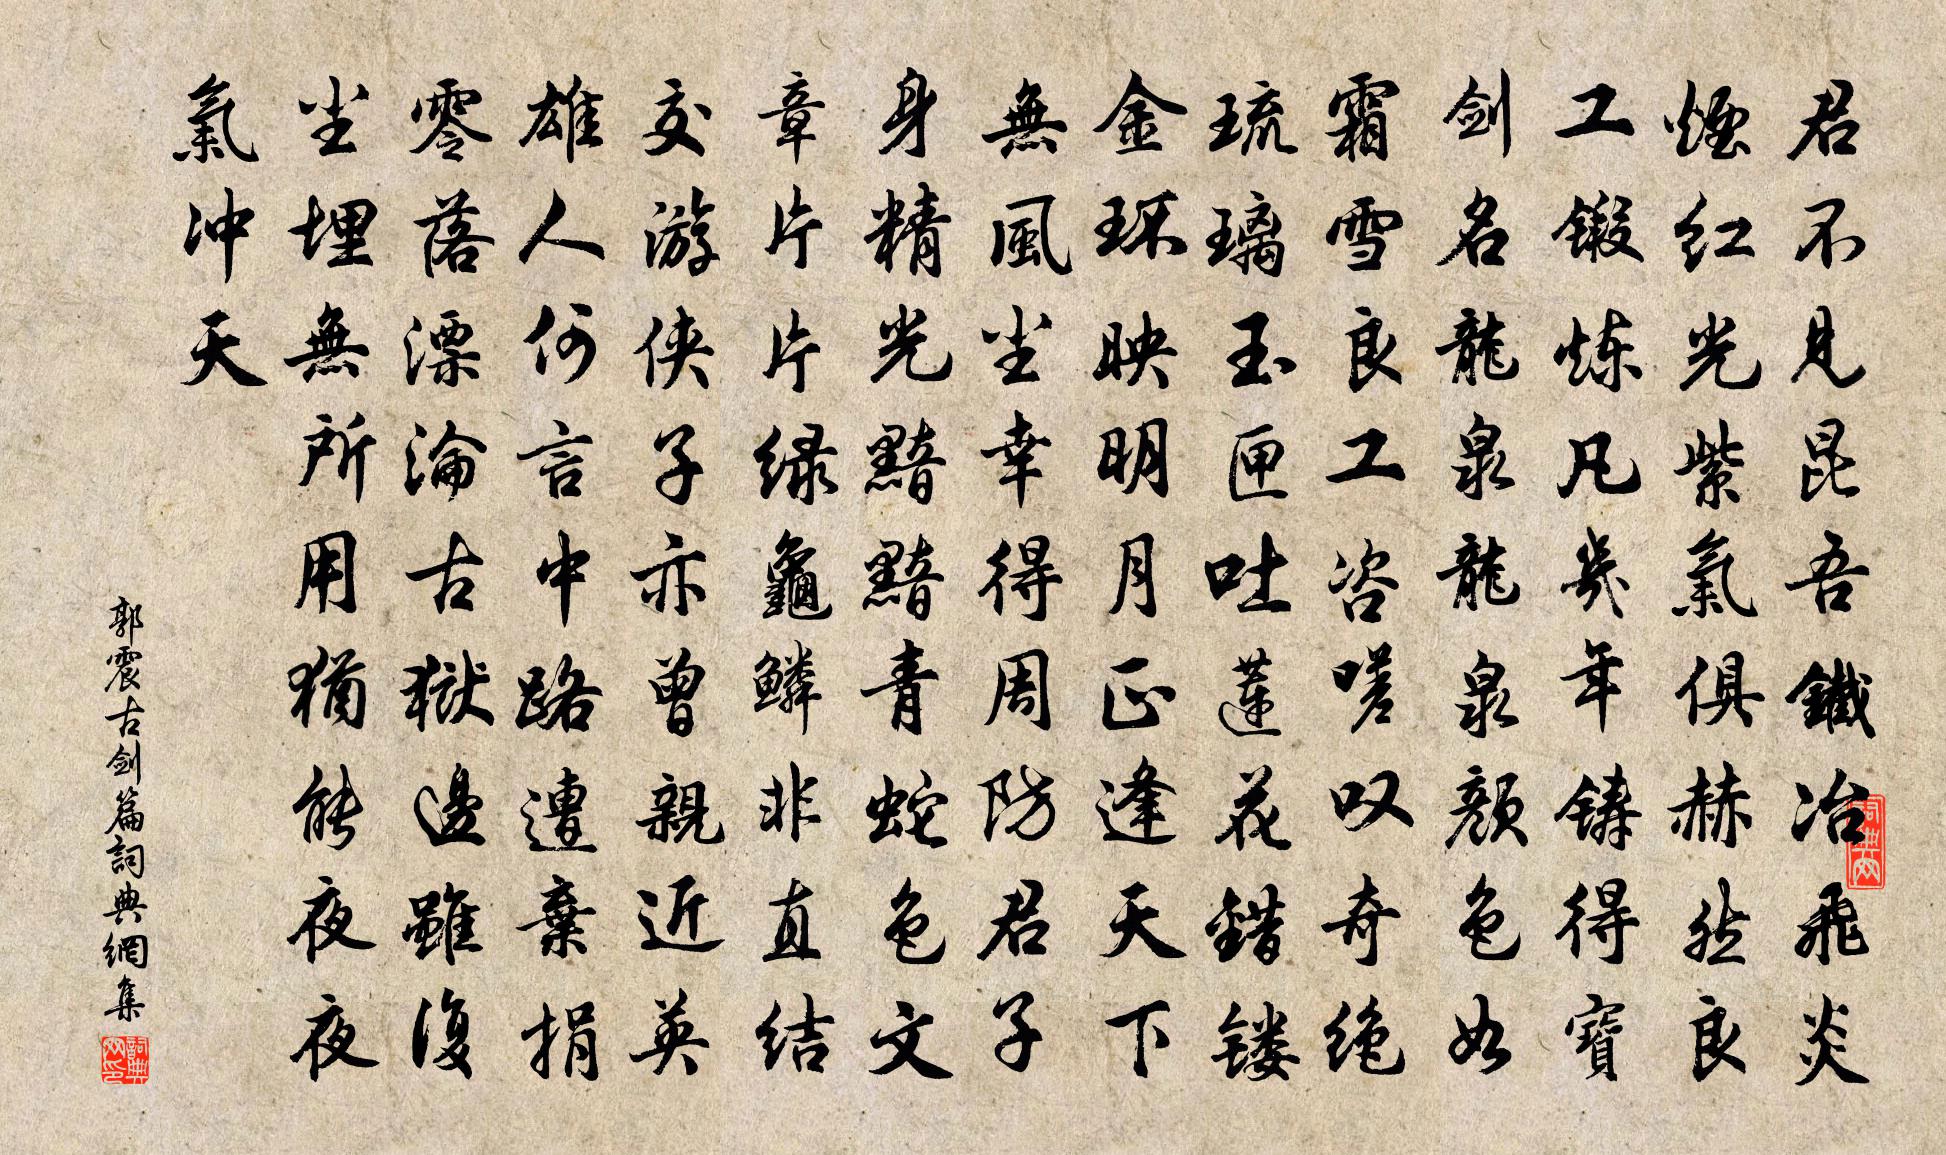 君不見昆吾鐵冶飛炎
煙红光紫氣俱赫然良
工鍛炼凡幾年鑄得寶
剑名龍泉龍泉顏色如
霜雪良工咨嗟叹奇绝
琉璃玉匣吐蓮花錯镂
金环映明月正逢天下
無風尘幸得周防君子
身精光黯黯青蛇色文
章片片绿龜鳞非直结
交游侠子亦曾親近英
雄人何言中路遭棄捐
零落漂淪古獄邊雖復
尘埋無所用猶能夜夜
氣冲天
郭震古剑篇詞典網集
詞典网印
詞典网